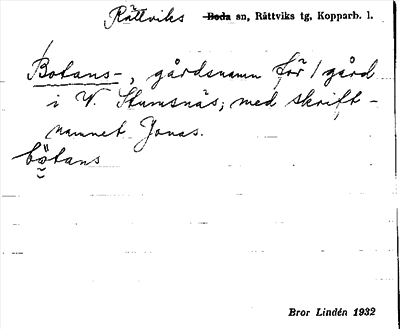 Rättviks ~~Boda~~ sn, Rättviks tg, Kopparb. l.
Botans-, gårdsnamn för 1 gård
i V. Stumsnäs; med skrift-
namnet Jonas.
bötans
Bror Lindén 1932